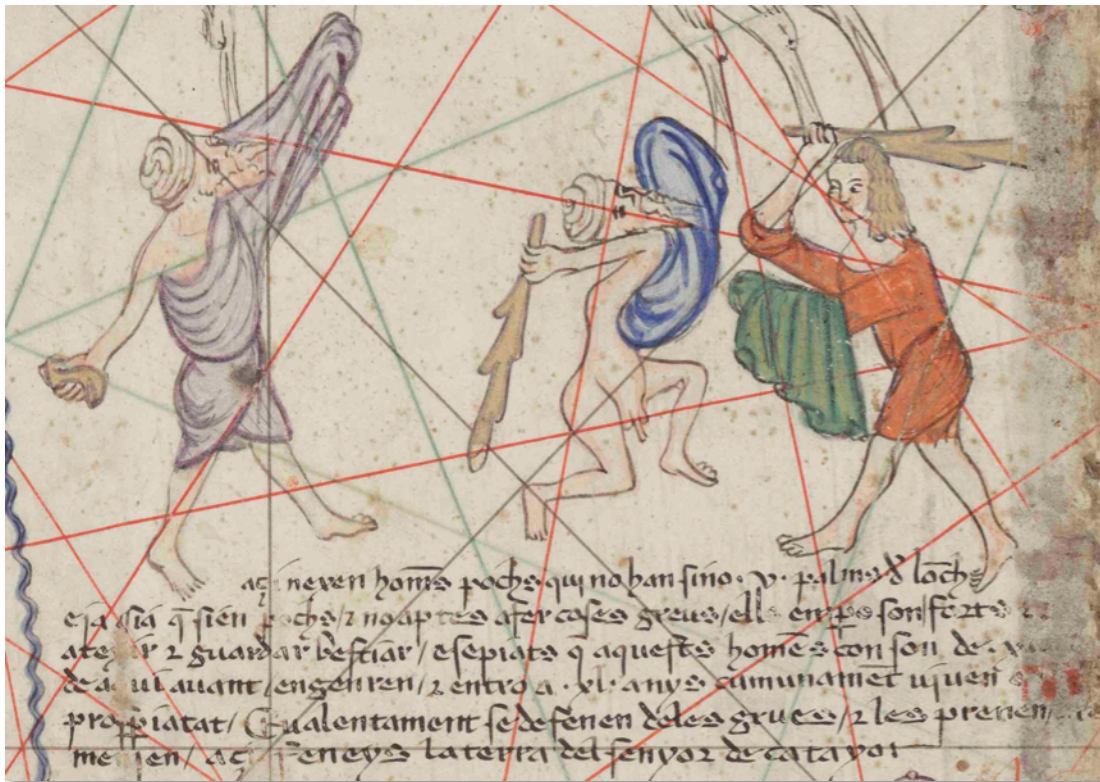 açi nexen homẽs pochs qui no han sino · v · palms d lõch
e ja sia q̃ sien pochs / ⁊ no aptes a fer coses greus / ells emp̱o son forts ⁊
a texir ⁊ guardar bestiar / e sepiats q̃ aquests homẽs con son de · x
de aqui auant / engenren / ⁊ entro a · xl · anys cumunamẽt uiuen
prosp̱iatat / E ualentament se defenen deles grues / ⁊ les prenen /
menjen / açi feneys la terra del senyor de catayo